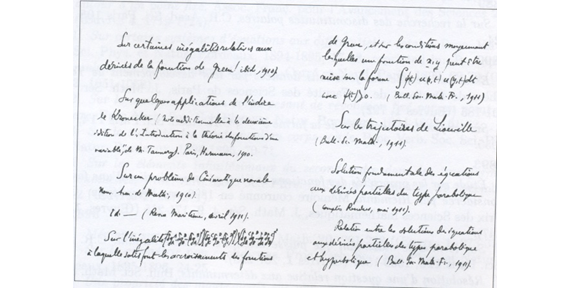 Sur certaines inégalités relatives aux
dérivées de la fonction de Green (ibid., 1910).
Sur quelques applications de l'indice
de Kronecker (Note additionnelle à la deuxième
édition de l'Introduction à la théorie des fonctions d'une
variable, de M. Tannery). Paris, Hermann, 1910.
Sur un problème de Cinématique navale
Nouv. Ann. de Math., 1910).
Id — (Revue Maritime, avril 1910).
Sur l'inégalité
à laquelle satisfont les accroissements des fonctions
de Green, et sur les conditions moyennant
lesquelles une fonction de x, y peut être
mise sous la forme
avec f(t)>0. (Bull. Soc. Math. Fr., 1911)
Sur les trajectoires de Liouville
(Bull. Sc. Math., 1911).
Solution fondamentale des équations
aux dérivées partielles du type parabolique
(Comptes Rendus, 1911).
Relation entre les solutions des équations
aux dérivées partielles des types parabolique
et hyperbolique (Bull. Soc. Math. Fr., 1911).